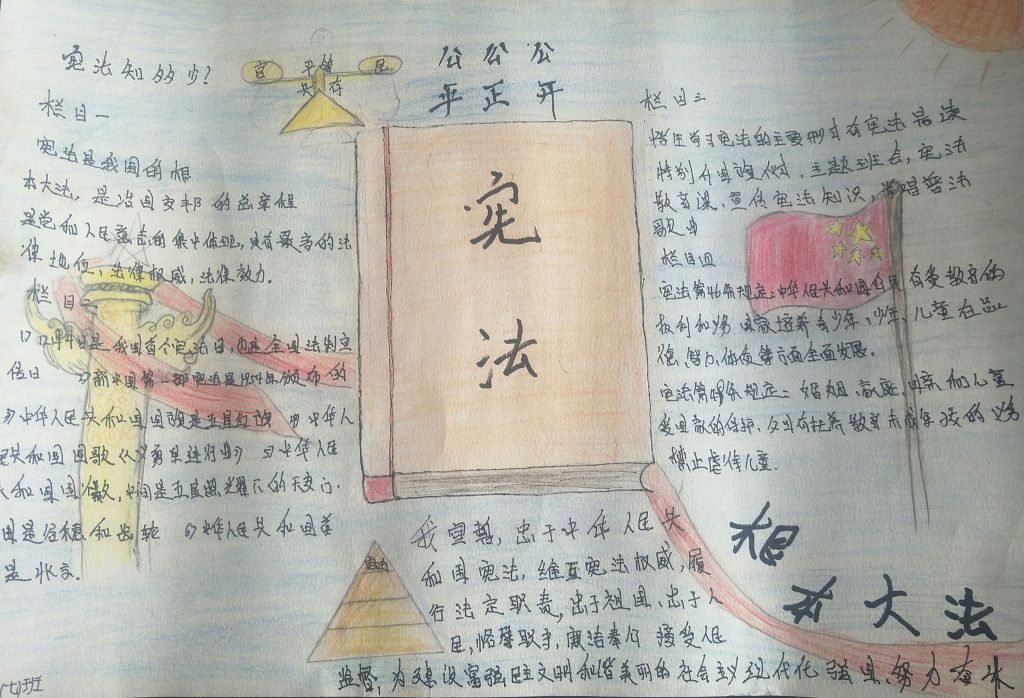 宪法知多少?
官 平等 民
共存
公 公 公
平 正 开
栏目一
宪法是我国的根
本大法,是治国安邦的总章程
是党和人民意志的集中体现,具有最高的法
律地位、法律权威、法律效力。
栏目二
1) 12月4日是我国首个宪法日,也是全国法制宣
传日 2)新中国第一部宪法是1954年颁布的
3)中华人民共和国国旗是五星红旗 4)中华人
民共和国国歌《义勇军进行曲》 5)中华人民
共和国国徽,中间是五星照耀下的天安门,
周围是谷穗和齿轮 6)中华人民共和国首
是北京.
宪
法
栏目三
学生学习宪法的主要形式有宪法晨读
特别升国旗仪式、主题班会,宪法
教育课,宣传宪法知识,唱普法
歌曲
栏目四
宪法第46条规定:中华人民共和国公民有受教育的
权利和义务 国家培养青少年、少年、儿童在品
德,智力,体质等方面全面发展.
宪法第49条规定:婚姻、家庭、母亲和儿童
受国家的保护,父母有抚养教育未成年孩的义务
禁止虐待儿童.
宪法
我宣誓,忠于中华人民共
和国宪法,维护宪法权威,履
行法定职责,忠于祖国、忠于人
民,恪尽职守,廉洁奉公 接受人民
监督,为建设富强民主文明和谐美丽的社会主义现代化强国努力奋斗
根
本大法
(七)班